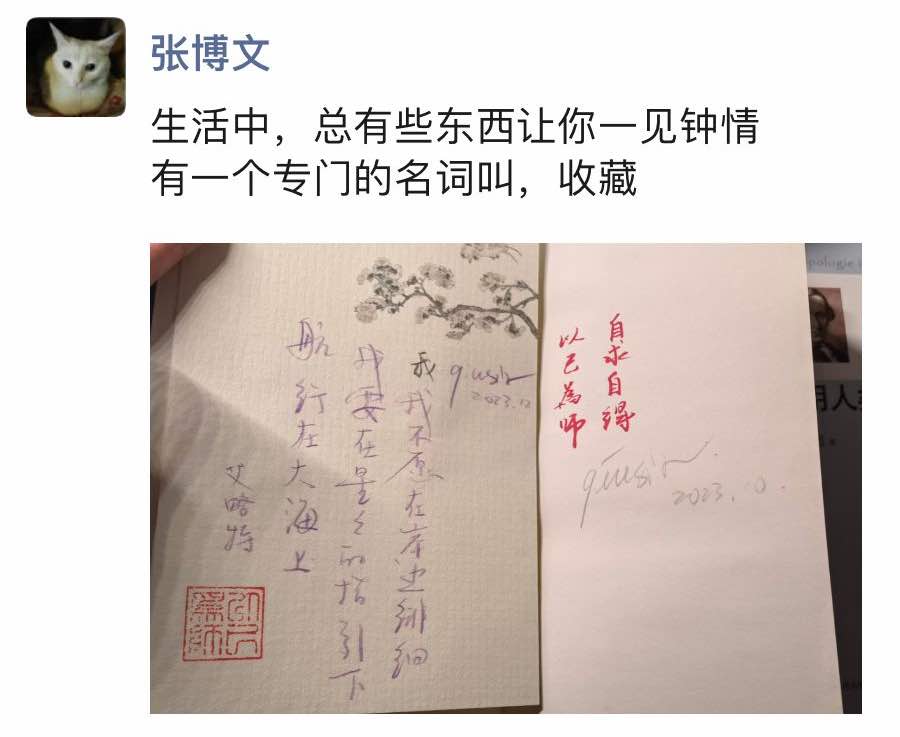 张博文
生活中，总有些东西让你一见钟情
有一个专门的名词叫，收藏
qiusir
2023.12
我我不愿在岸边徘徊
我要在星辰的指引下
航行在大海上
艾略特
以己为师
自求自得
以己為师
qiusir
2023.10.
pologie
明人